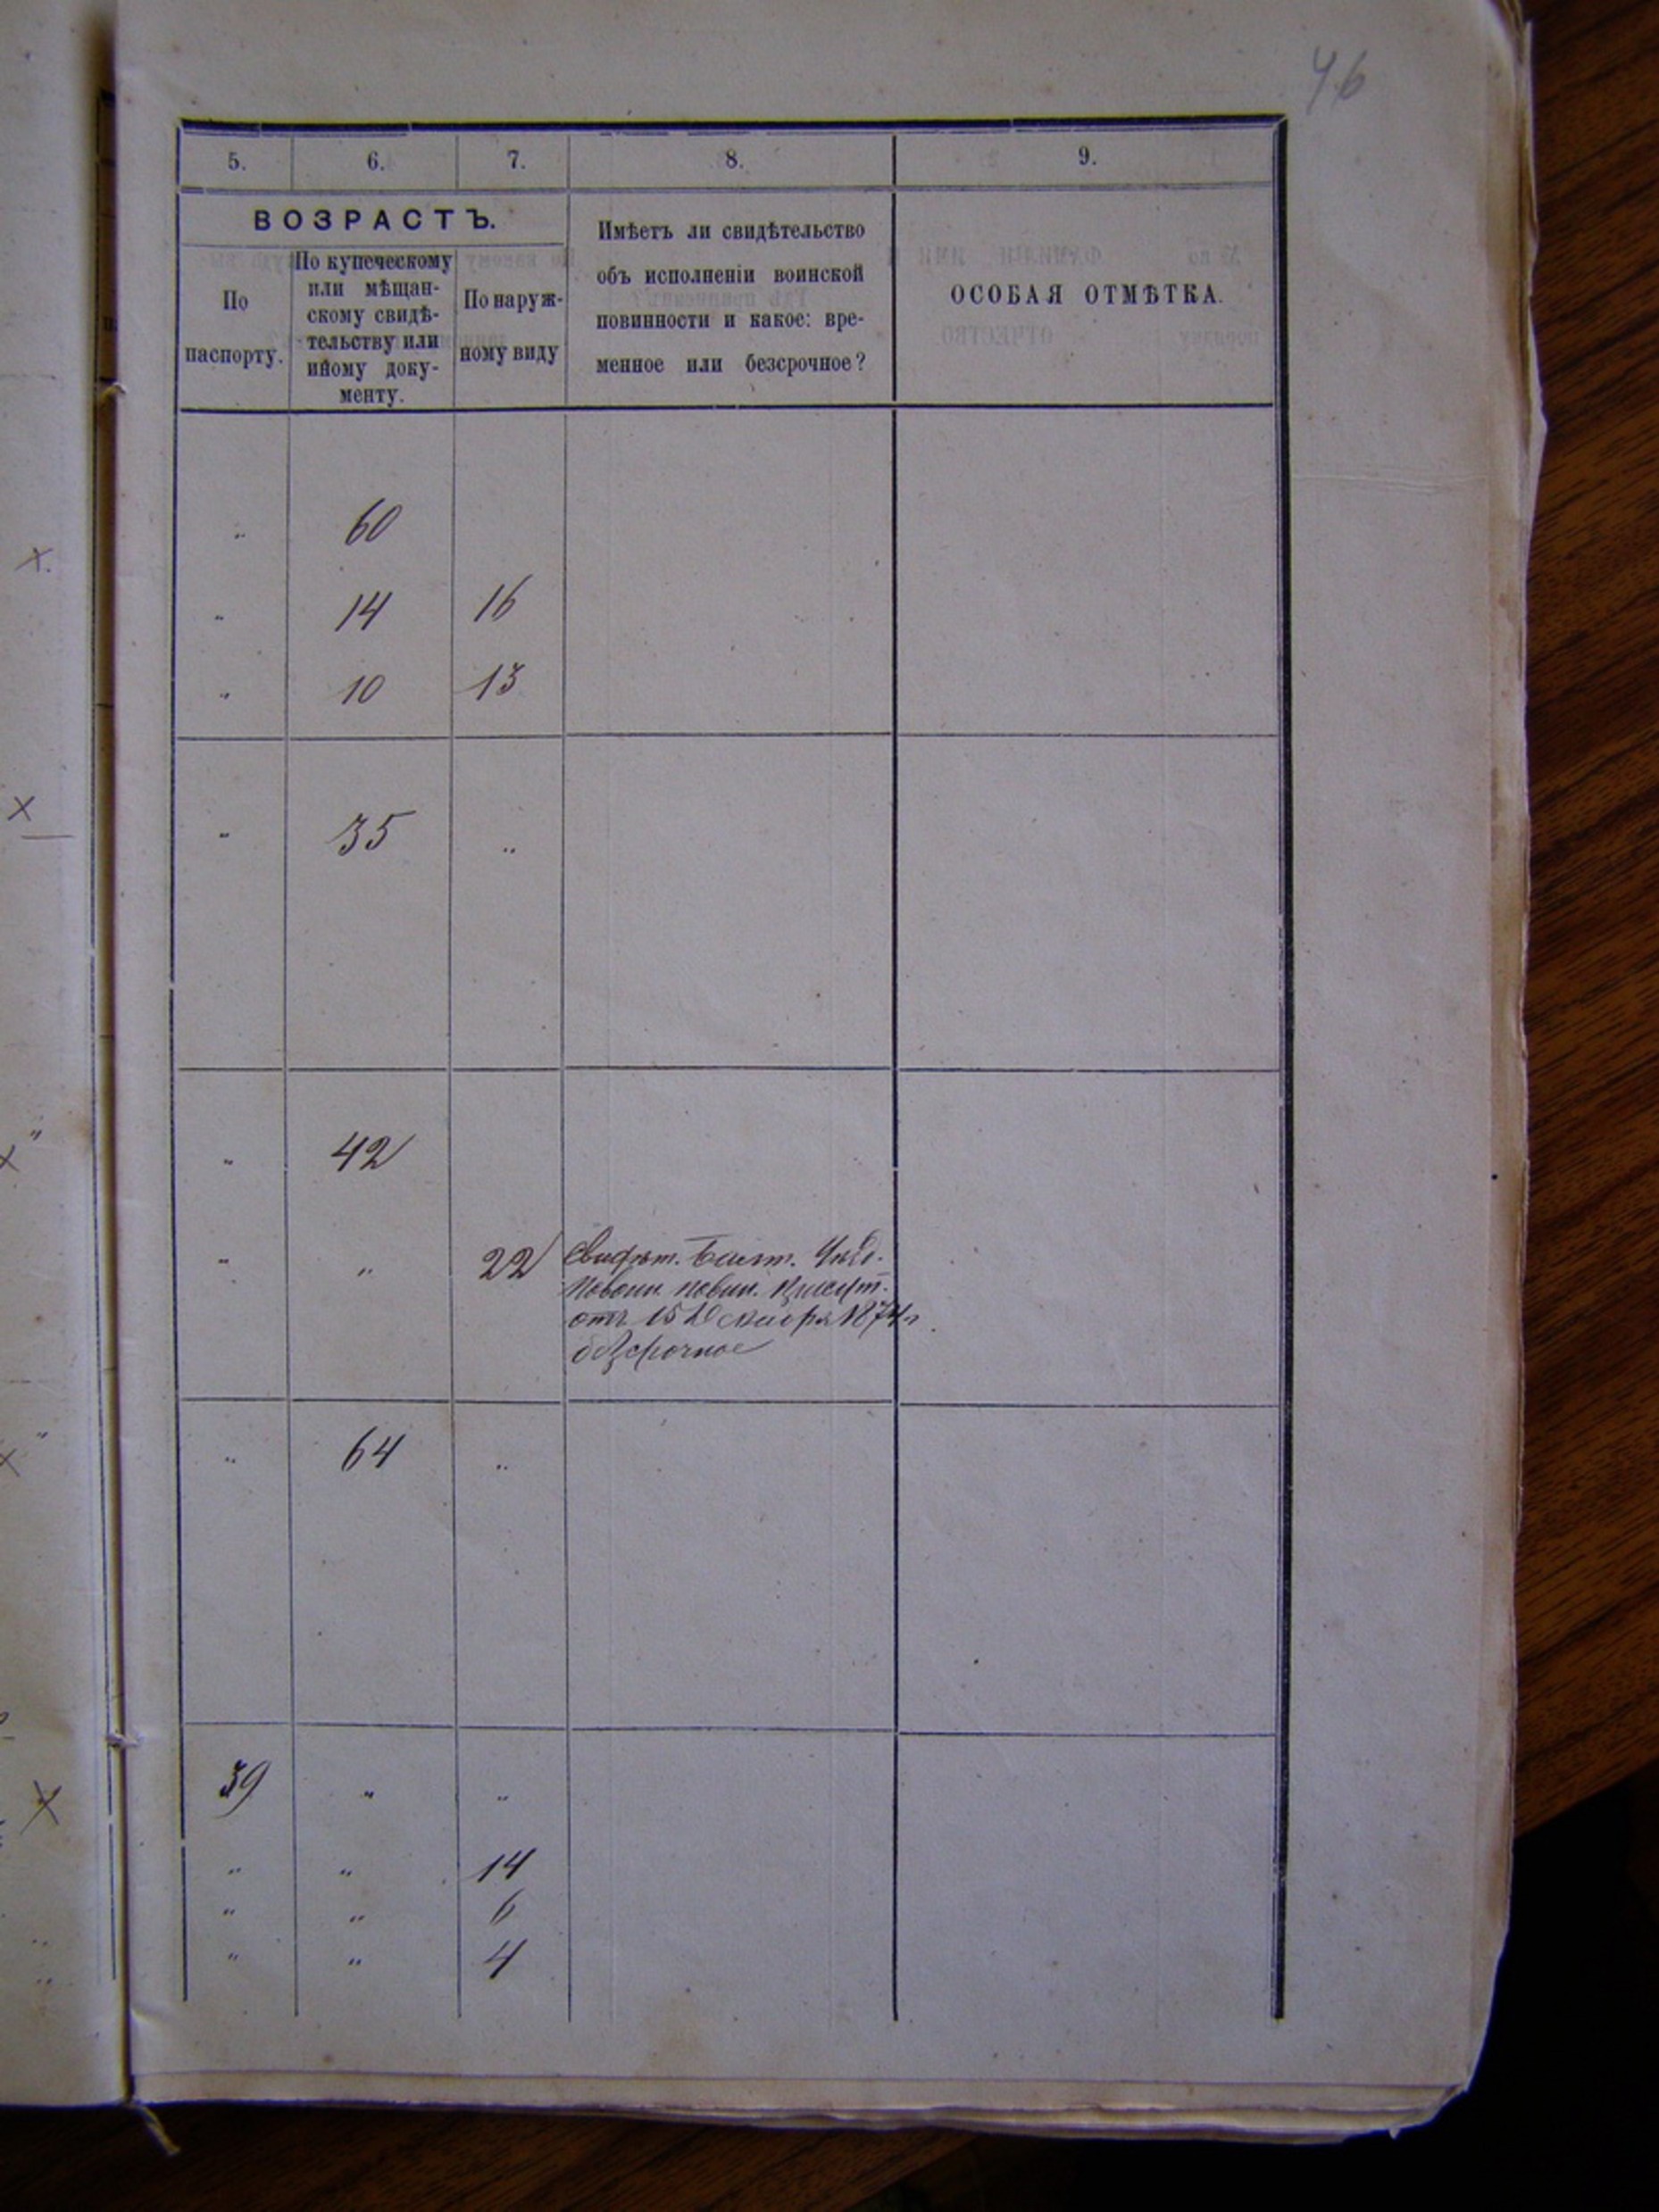 46
5. 6. 7. 8. 9.
ВОЗРАСТЪ.
По
паспорту.
По купеческому
или мѣщан-
скому свидѣ-
тельству или
иному доку-
менту.
По наруж-
ному виду
Имѣетъ ли свидѣтельство
объ исполненіи воинской
повинности и какое: вре-
менное или безсрочное?
ОСОБАЯ ОТМѢТКА.
" 60
" 14 16
" 10 13
" 35 "
" 42
" " 22 Свидѣт.
повоин. повин. присут.
отъ 15 Декабря 1874 г.
безсрочное
" 64 "
39 " "
" " 14
" " 6
" " 4